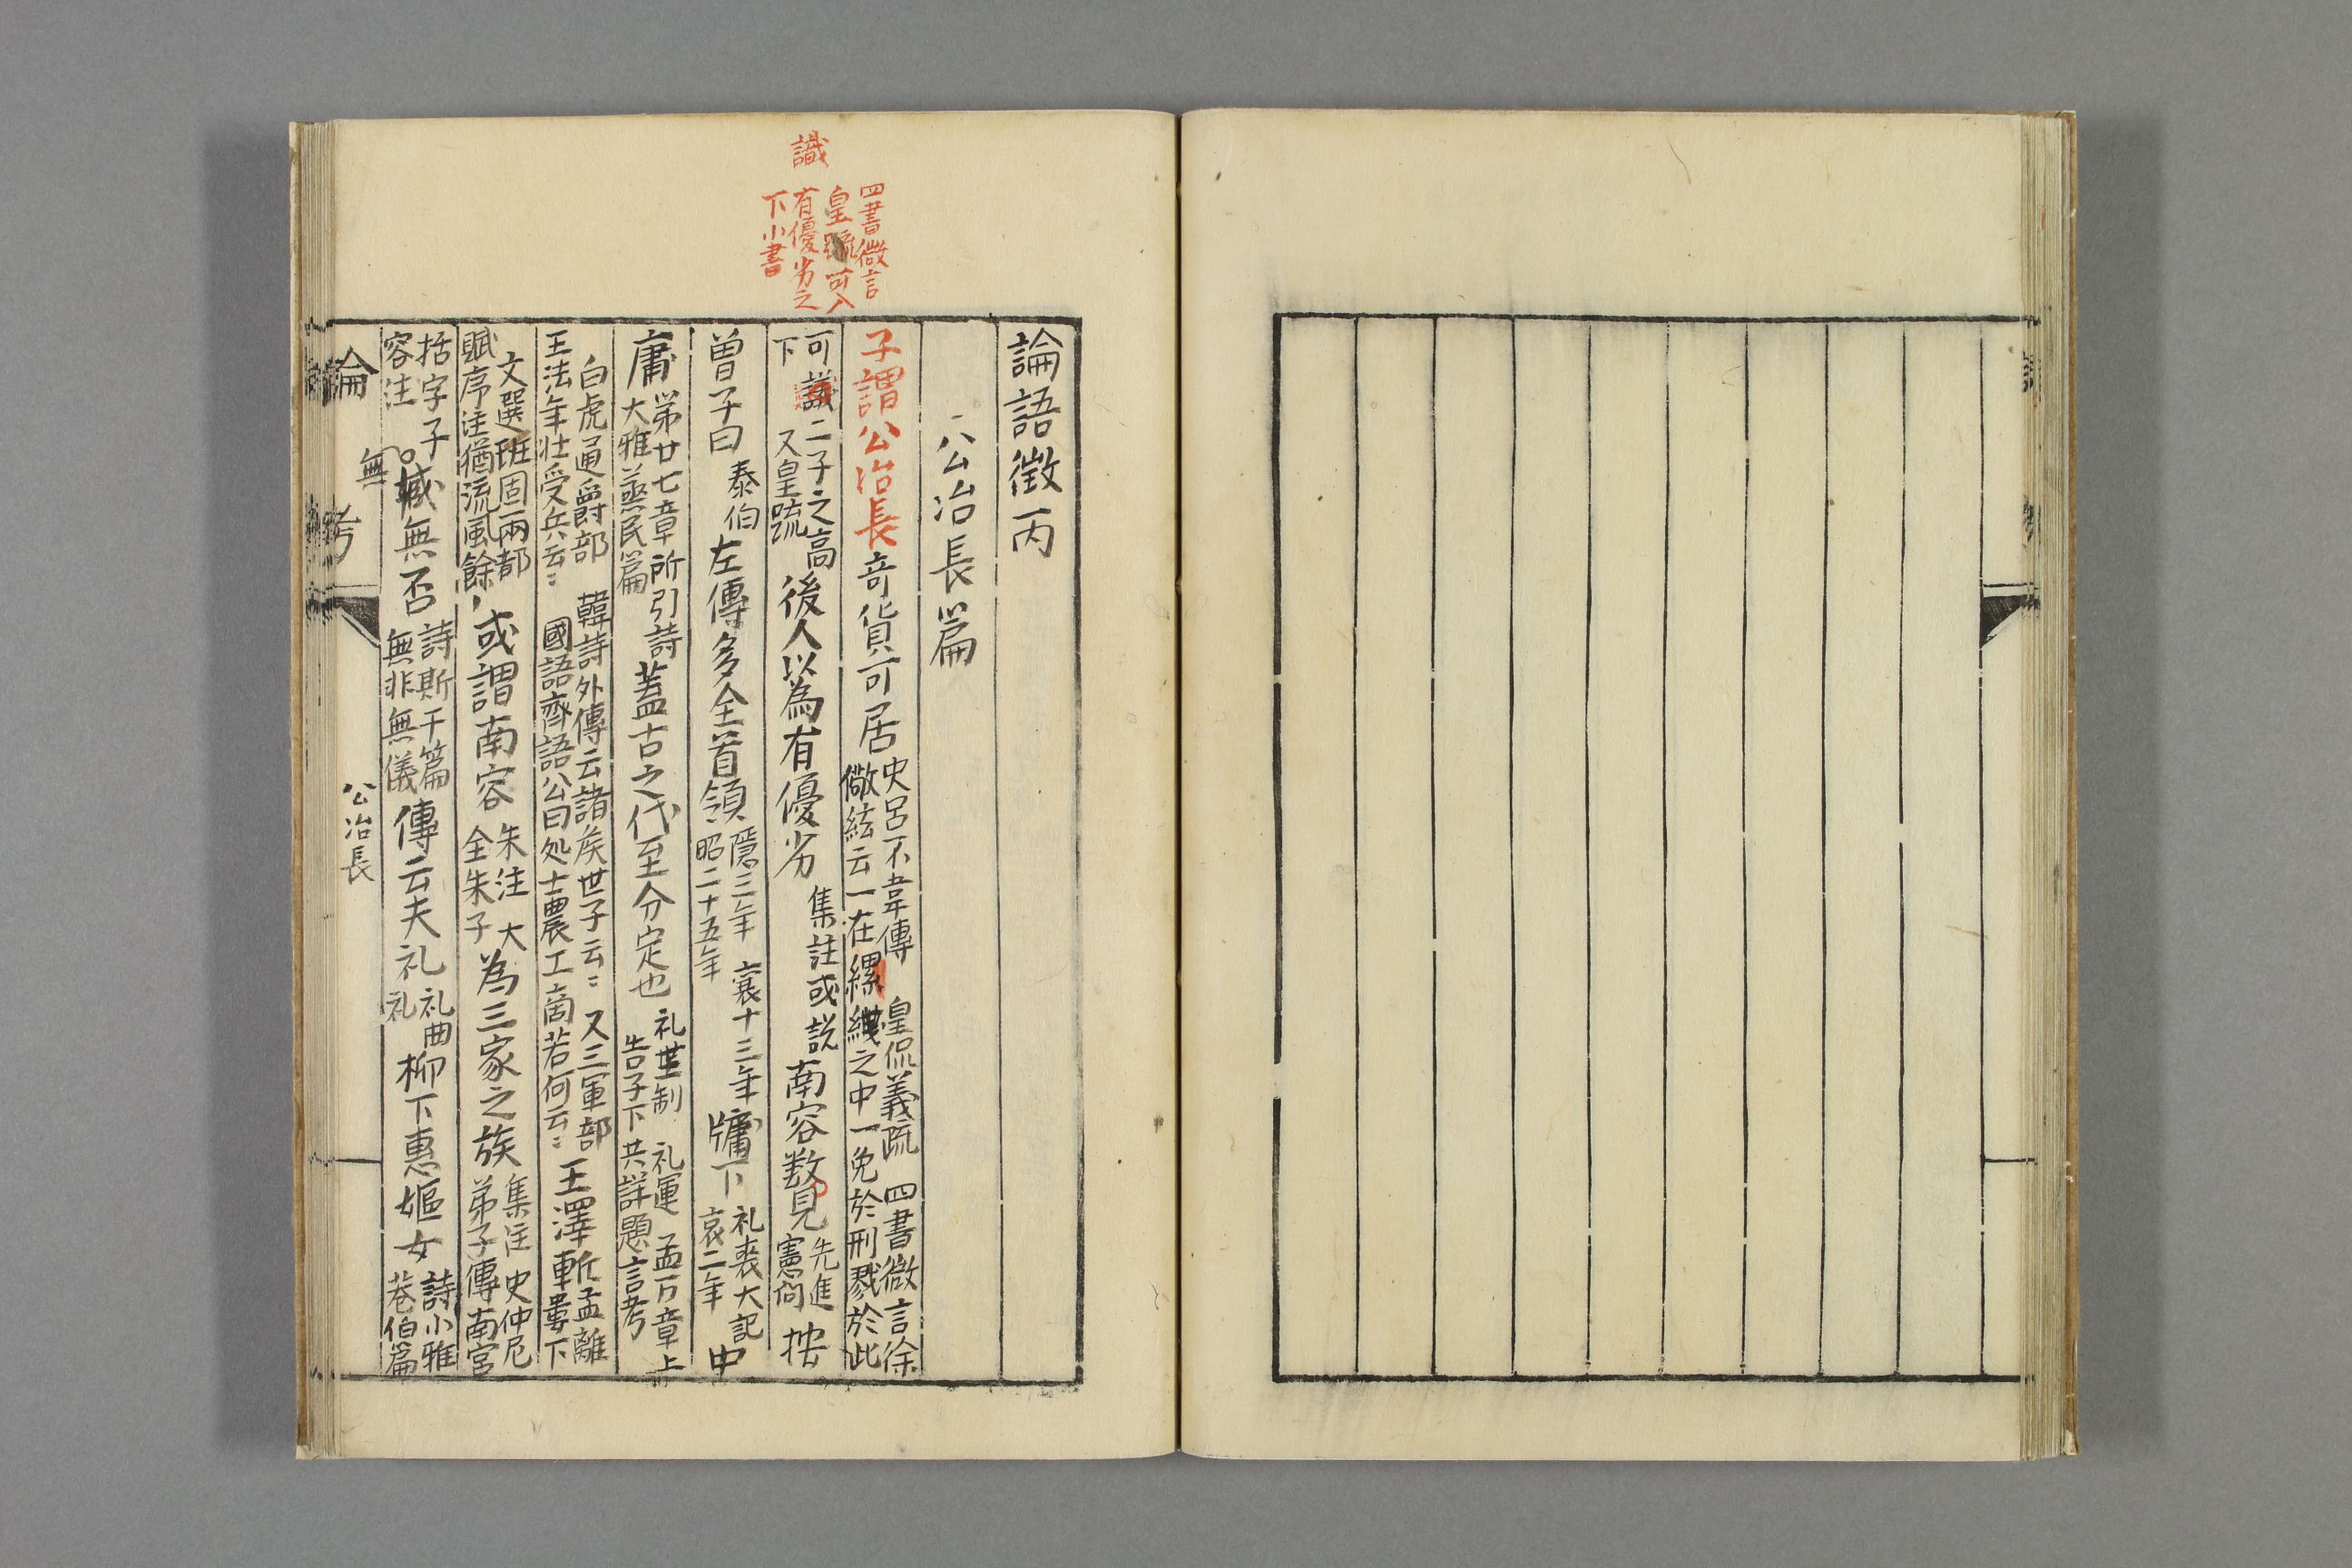 識
四書微言
皇疏可入
有優劣之
下小書
論語徴丙
公冶長篇
子謂公冶長奇貨可居史呂不韋傳 皇侃義疏 四書微言徐
儆絃云一在縲絏之中一免於刑戮於此
可識二子之高
下 又皇疏
後人以為有優劣集註或説南容数見先進
憲問按
曽子曰泰伯左傳多全首領隱三年 襄十三年
昭二十五年
牖下礼喪大記
哀二年中
庸第廿七章所引詩
大雅蒸民篇
蓋古之代至分定也礼王制 礼運 孟万章上
告子下 共詳題言考
白虎通爵部 韓詩外傳云諸侯世子云〻 又三軍部
王法年壮受兵云〻 國語齊語公曰処士農工商若何云〻
王澤斬孟離
婁下
文選班固兩都
賦序注猶流風餘
或謂南容朱注 大
全朱子
為三家之族集注 史仲尼
弟子傳南宮
括字子
容注
臧無否詩斯干篇
無非無儀
傳云夫礼礼曲
礼
柳下惠嫗女詩小雅
巷伯篇
無
論 考
公冶長